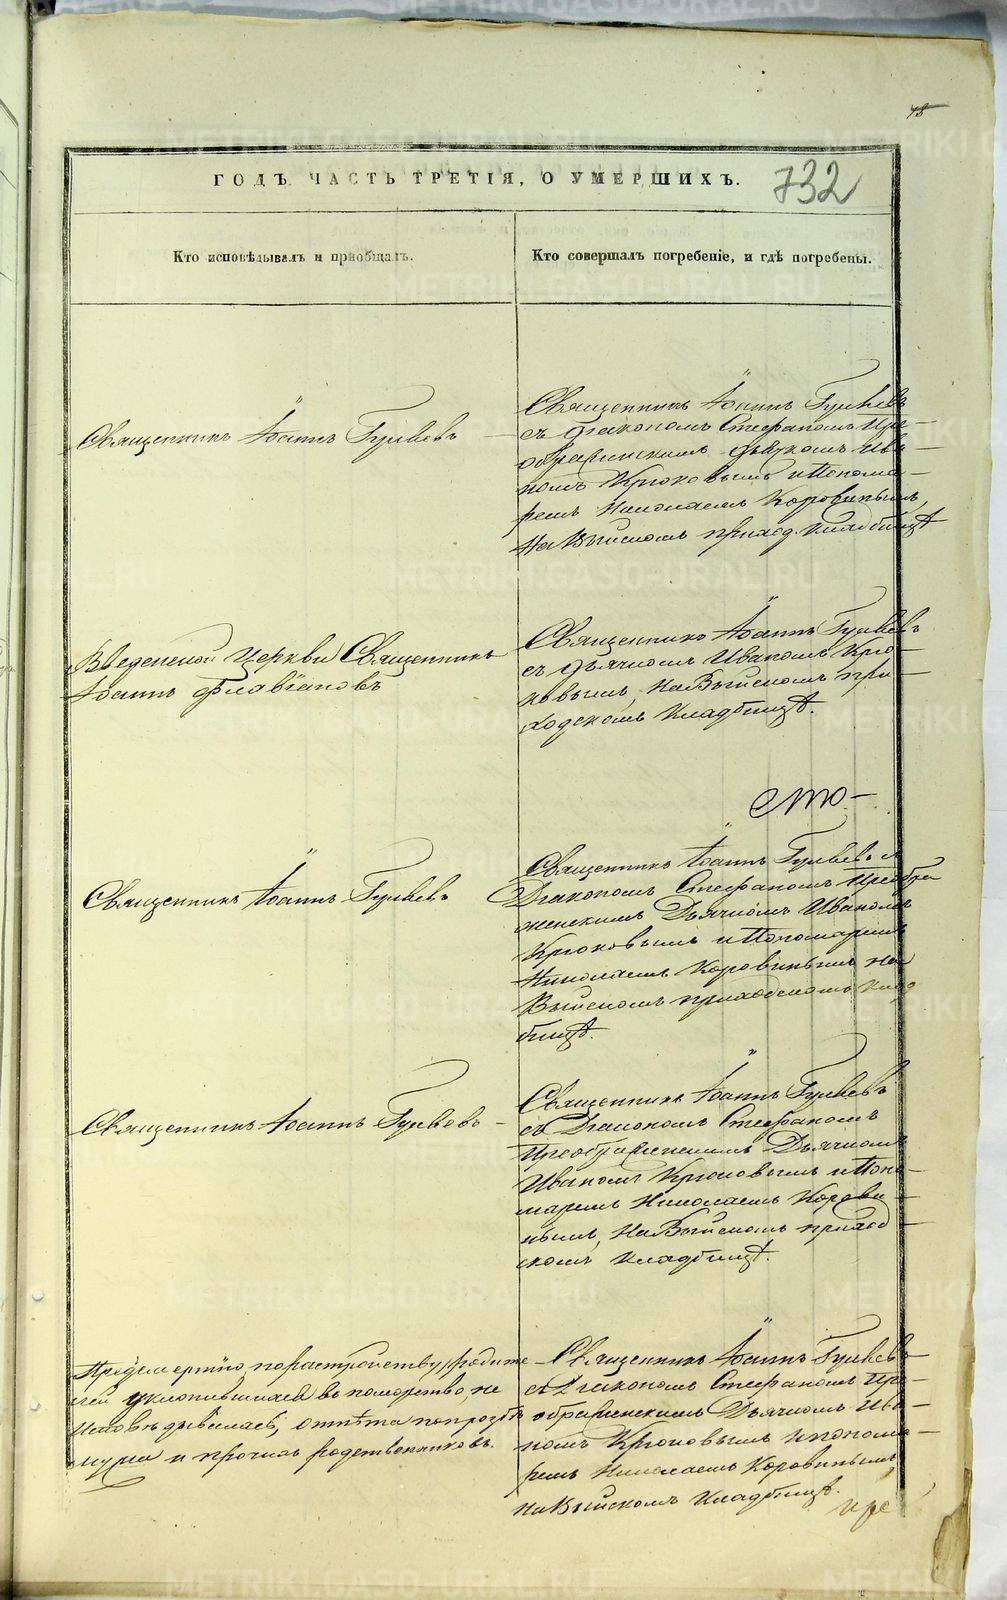 78
ГОДЪ ЧАСТЬ ТРЕТІЯ, О УМЕРШИХЪ.
732
Кто исповѣдывалъ и пріобщалъ.
Кто совершалъ погребеніе, и гдѣ погребены.
Священникъ Іоаннъ Гуляевъ
Священникъ Іоаннъ Гуляевъ
съ Діакономъ Стефаномъ Пре-
ображенскимъ Дьячкомъ Ива-
номъ Крюковымъ и Понома-
ремъ Николаемъ Коровинымъ,
На Выйскомъ приход. кладбищѣ
Введенской церкви Священникъ
Іоаннъ Флавіановъ
Священникъ Іоаннъ Гуляевъ
съ Дьячкомъ Иваномъ Крю-
ковымъ, На Выйскомъ при-
ходскомъ кладбищѣ.
сто
Священникъ Іоаннъ Гуляевъ
Священникъ Іоаннъ Гуляевъ съ
Діакономъ Стефаномъ Преобра
женскимъ Дьячкомъ Иваномъ
Крюковымъ и Пономаремъ
Николаемъ Коровинымъ на
Выйскомъ приходскомъ клад
бищѣ.
Священникъ Іоаннъ Гуляевъ
Священникъ Іоаннъ Гуляевъ
съ Діакономъ Стефаномъ
Преображенскимъ Дьячкомъ
Иваномъ Крюковымъ и Поно-
маремъ Николаемъ Корови-
нымъ, На Выйскомъ приход-
скомъ кладбищѣ.
по разстройству родите
лей уклонившихся въ поморство, не
исповѣдывалась, отпѣта по прозьбѣ
мужа и прочихъ родственниковъ.
Священникъ Іоаннъ Гуляевъ
съ Діакономъ Стефаномъ Пре-
ображенскимъ Дьячкомъ Ива-
номъ Крюковымъ и понома-
ремъ Николаемъ Коровинымъ
на Выйскомъ кладбищѣ.
METRIKI.GASO-URAL.RU